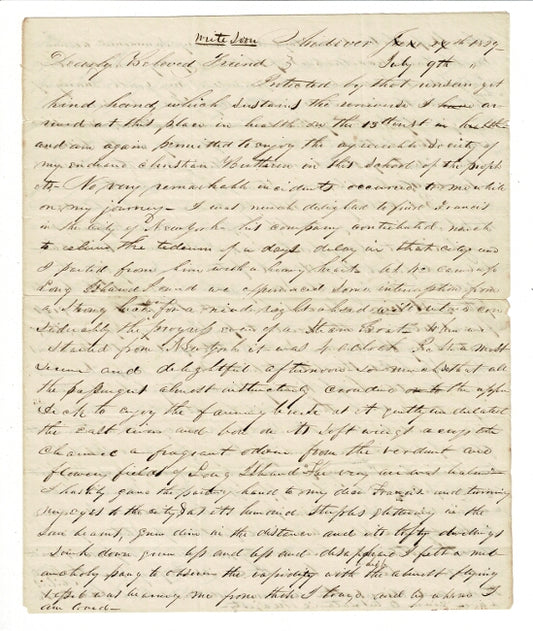 Write Soon
Andover June 17th 18
Dearly Beloved Friend July 9th "
Protected by that unseen yet
kind hand, which sustains the universe I have ar-
rived at this place in health on the 13th inst in health
and am again permitted to enjoy the agreeable society of
my endeared christian Brethren in this School of the proph
ets. No very remarkable incidents occurred to me while
on my journey. I was much delighted to find Francis
in the city of New York his company contributed much
to relieve the tedium of a days delay in that city and
I parted from him with a heavy heart. As we came up
Long Island Sound we experienced some interruption from
a strong for a wind right ahead will a con
siderably the progress even of a Steam Boat. When we
started from New York it was 4 oclock P.M. a most
serene and delightful afternoon so much so that all
the passengers almost instinctively crowded on to the upper
deck to enjoy the fanning breeze as it gently undulated
the east river and bore on its soft wings acceptable
a fragrant odour from the verdant and
flowery fields of Long Island. The very air was balm
I hastily gave the parting hand to my dear Francis and turning
my eyes to the city, saw its hundred steeples glistening in the
sun beams, grew dim in the distance and its lofty dwellings
sink down grow less and less and disappear I felt a mel
ancholy pang to observe the rapidity with which the almost flying
vessel was bearing me from those I loved and by whom I
am loved—